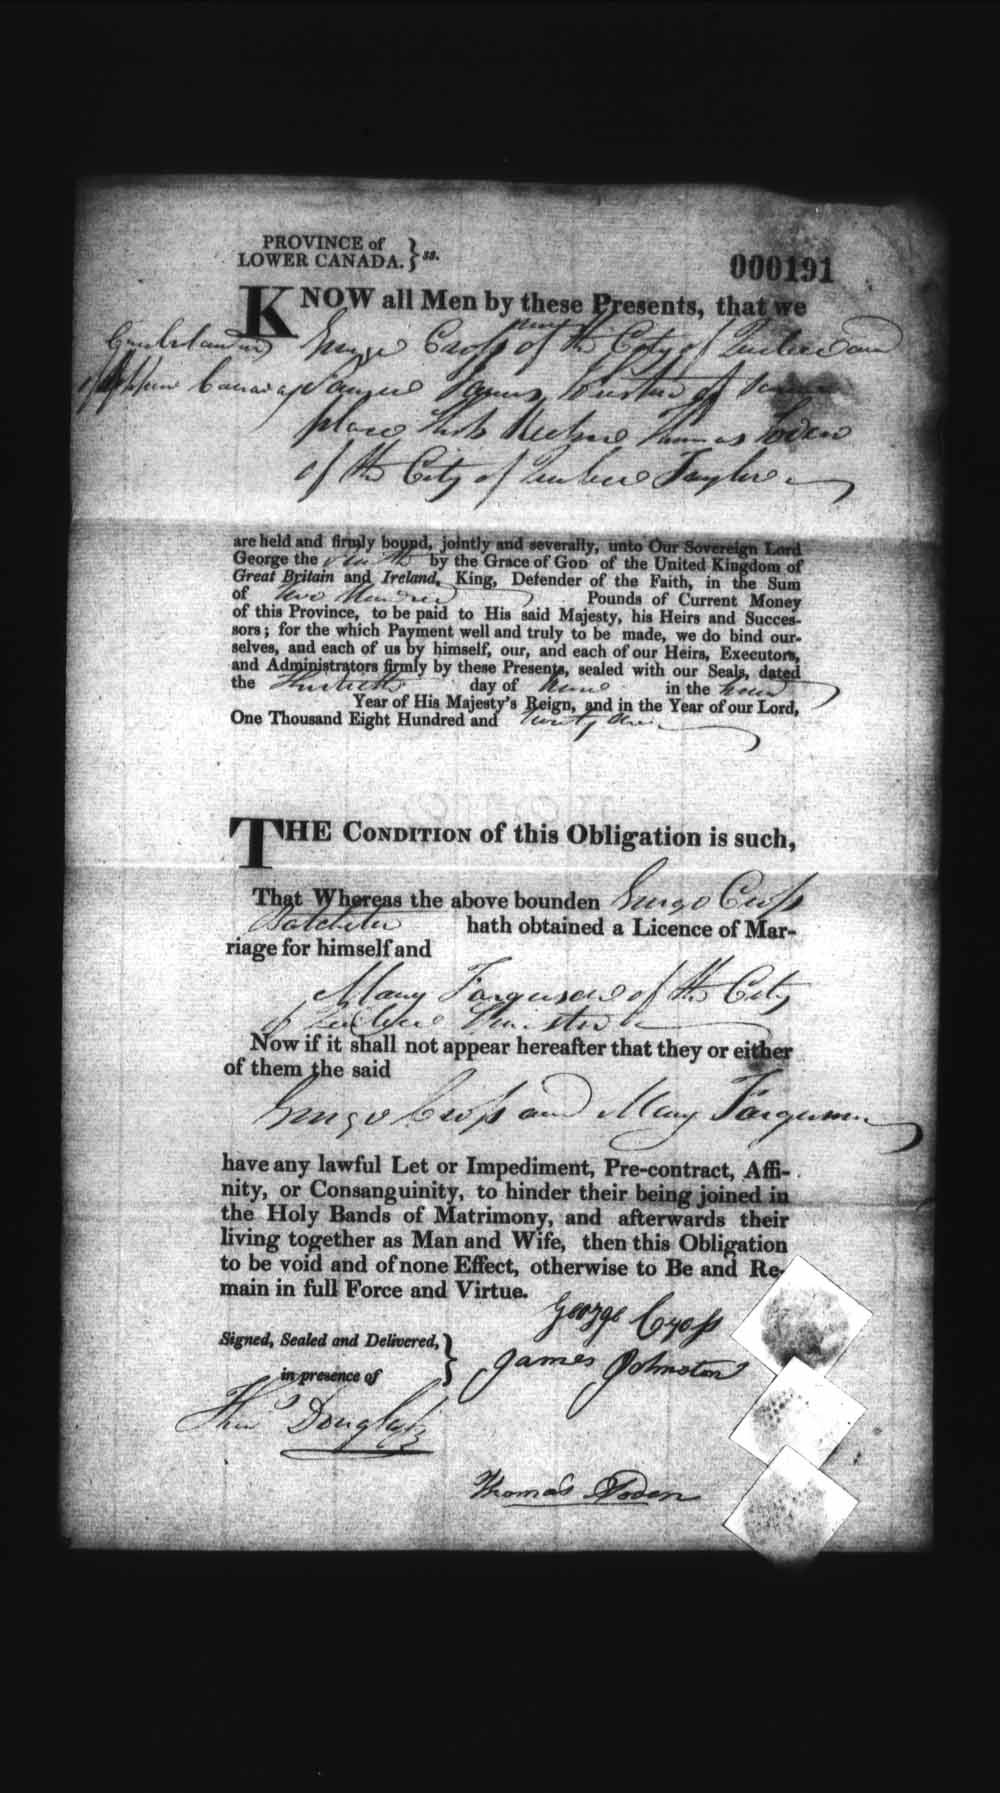 PROVINCE of
LOWER CANADA. } ss.
000191
KNOW all Men by these Presents, that we
George Cross of the City of Quebec and
of Upper Canada James
place Thomas Toden
of the City of Quebec Taylor
are held and firmly bound, jointly and severally, unto Our Sovereign Lord
George the by the Grace of GOD of the United Kingdom of
Great Britain and Ireland, King, Defender of the Faith, in the Sum
of Two Hundred Pounds of Current Money
of this Province, to be paid to His said Majesty, his Heirs and Succes-
sors; for the which Payment well and truly to be made, we do bind our-
selves, and each of us by himself, our, and each of our Heirs, Executors,
and Administrators firmly by these Presents, sealed with our Seals, dated
the day of June in the
Year of His Majesty's Reign, and in the Year of our Lord,
One Thousand Eight Hundred and Twenty
THE CONDITION of this Obligation is such,
That Whereas the above bounden George Cross
Batchelor hath obtained a Licence of Mar-
riage for himself and
Mary Farguson of the City
of Quebec Spinster
Now if it shall not appear hereafter that they or either
of them the said
George Cross and Mary Farguson
have any lawful Let or Impediment, Pre-contract, Affi-
nity, or Consanguinity, to hinder their being joined in
the Holy Bands of Matrimony, and afterwards their
living together as Man and Wife, then this Obligation
to be void and of none Effect, otherwise to Be and Re-
main in full Force and Virtue.
George Cross
Signed, Sealed and Delivered,
James Johnston
in presence of
Thos Douglass
Thomas Toden